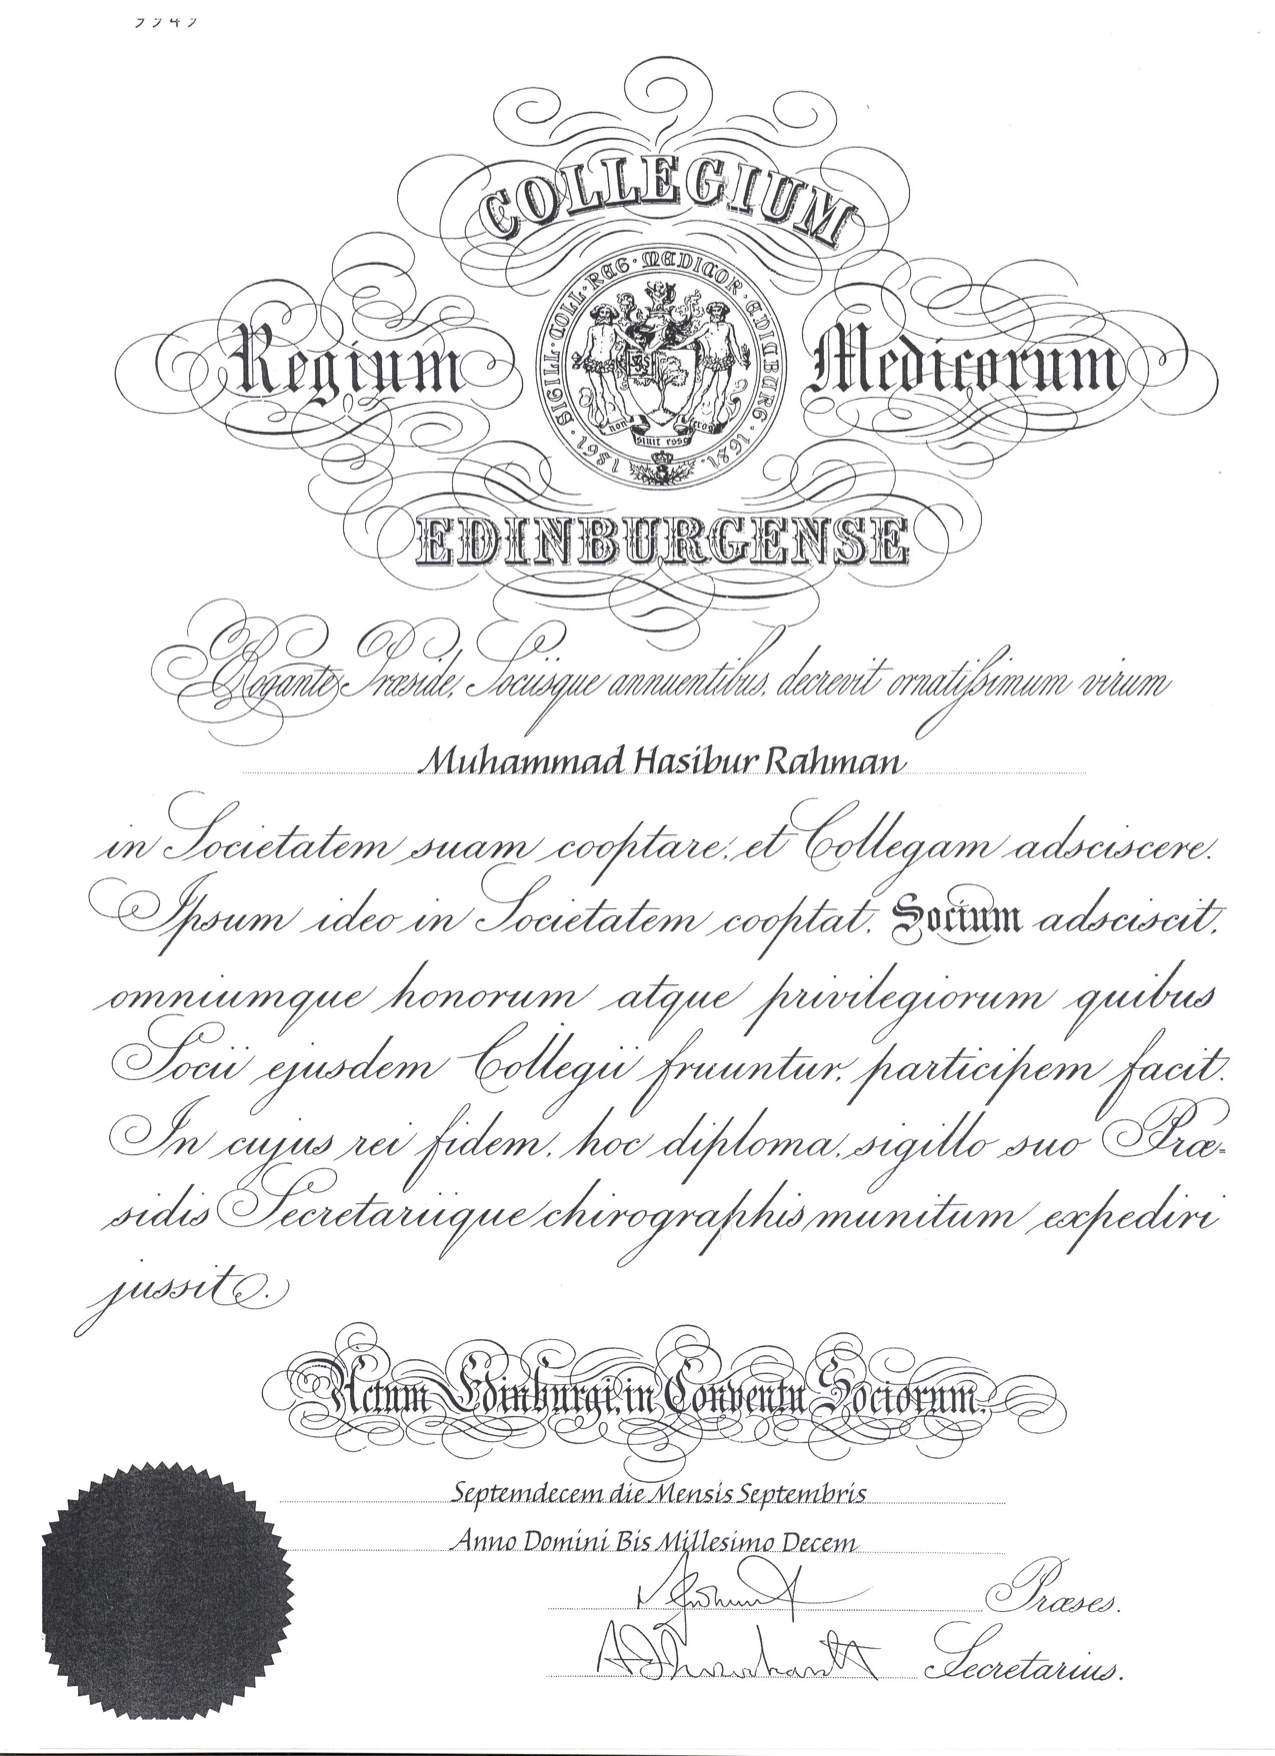 COLLEGIUM
Regium
Medicorum
SIGILL · COLL · REG · MEDICOR · EDIGBURG · 1681 · 1951
non
sinit esse
feros
EDINBURGENSE
Rogante Præside, Sociisque annuentibus, decrevit ornatissimum virum
Muhammad Hasibur Rahman
in Societatem suam cooptare, et Collegam adsciscere.
Ipsum ideo in Societatem cooptat, Socium adsciscit,
omniumque honorum atque privilegiorum quibus
Socii ejusdem Collegii fruuntur, participem facit.
In cujus rei fidem, hoc diploma, sigillo suo Præ-
sidis Secretariique chirographis munitum expediri
jussit.
Actum Edinburgi, in Conventu Sociorum,
Septemdecem die Mensis Septembris
Anno Domini Bis Millesimo Decem
Præses.
Secretarius.